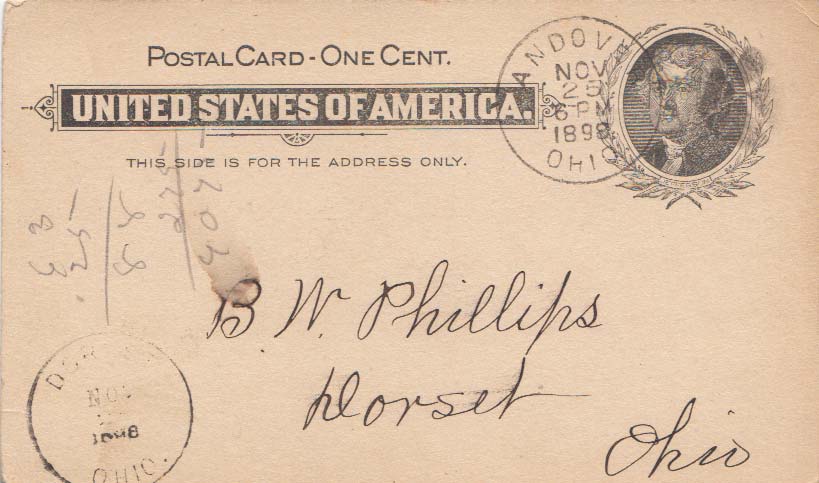 POSTAL CARD - ONE CENT.
UNITED STATES OF AMERICA.
THIS SIDE IS FOR THE ADDRESS ONLY.
ANDOV
NOV
25
6 PM
1898
OHIO
B. W. Phillips
Dorset
Ohio
NO
1898
OHIO.